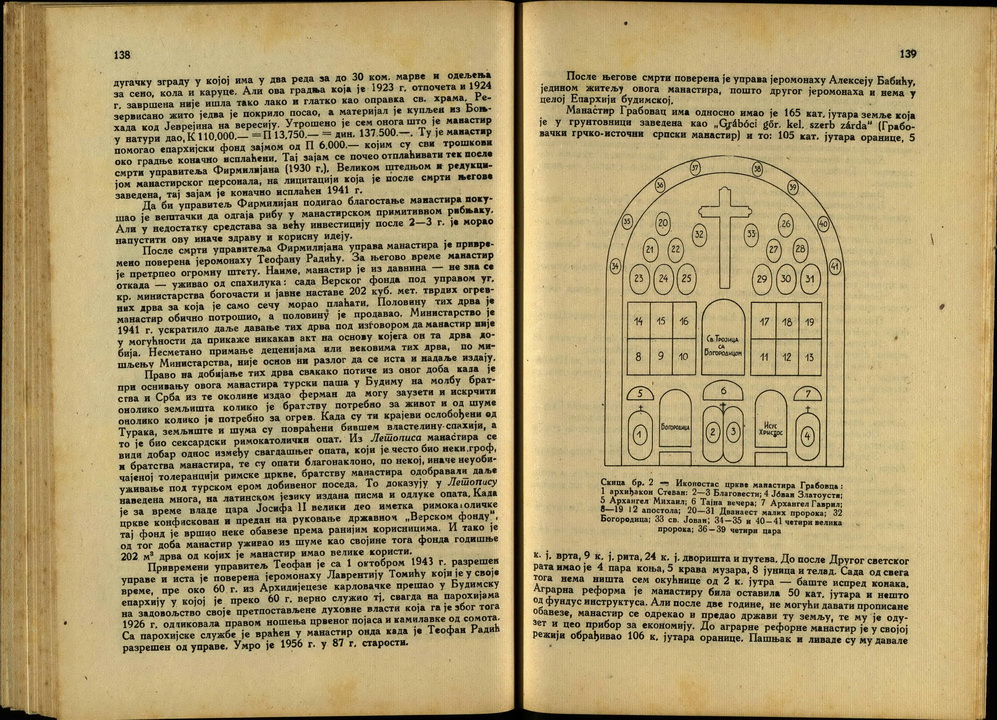 138
дугачку зграду у којој има у два реда за до 30 ком. марве и одељења
за сено, кола и каруце. Али ова градња која је 1923 г. отпочета и 1924
г. завршена није ишла тако лако и глатко као оправка св. храма. Ре-
зервисано жито једва је покрило посао, а материјал је купљен из Боњ-
хада код Јеврејина на вересију. Утрошено је сем онога што је манастир
у натури дао, К 110,000.— = П 13,750.— = дин. 137.500.—. Ту је манастир
помогао епархијски фонд зајмом од П 6,000.— којим су сви трошкови
око градње коначно исплаћени. Тај зајам се почео отплаћивати тек после
смрти управитеља Фирмилијана (1930 г.). Великом штедњом и редукци-
јом манастирског персонала, на лицитацији која је после смрти његове
заведена, тај зајам је коначно исплаћен 1941 г.
Да би управитељ Фирмилијан подигао благостање манастира поку-
шао је вештачки да одгаја рибу у манастирском примитивном рибњаку.
Али у недостатку средстава за већу инвестицију после 2—3 г. је морао
напустити ову иначе здраву и корисну идеју.
После смрти управитеља Фирмилијана управа манастира је привре-
мено поверена јеромонаху Теофану Радићу. За његово време манастир
је претрпео огромну штету. Наиме, манастир је из давнина — не зна се
откада — уживао од спахилука: сада Верског фонда под управом уг.
кр. министарства богочасти и јавне наставе 202 куб. мет. тврдих огрев-
них дрва за која је само сечу морао плаћати. Половину тих дрва је
манастир обично потрошио, а половину је продавао. Министарство је
1941 г. ускратило даље давање тих дрва под изговором да манастир није
у могућности да прикаже никакав акт на основу којега он та дрва до-
бија. Несметано примање деценијама или вековима тих дрва, по ми-
шљењу Министарства, није основ ни разлог да се иста и надаље издају.
Право на добијање тих дрва свакако потиче из оног доба када је
при оснивању овога манастира турски паша у Будиму на молбу брат-
ства и Срба из те околине издао ферман да могу заузети и искрчити
онолико земљишта колико је братству потребно за живот и од шуме
онолико колико је потребно за огрев. Када су ти крајеви ослобођени од
Турака, земљиште и шума су повраћени бившем властелину-спахији, а
то је био сексардски римокатолички опат. Из Летописа манастира се
види добар однос између свагдашњег опата, који је често био неки гроф,
и братства манастира, те су опати благонаклоно, по некој, иначе неуоби-
чајеној толеранцији римске цркве, братству манастира одобравали даље
уживање под турском ером добивеног поседа. То доказују у Летопису
наведена многа, на латинском језику издана писма и одлуке опата. Када
је за време владе цара Јосифа II велики део иметка римокатоличке
цркве конфискован и предан на руковање државном „Верском фонду“,
тај фонд је вршио неке обавезе према ранијим корисницима. И тако је
од тог доба манастир уживао из шуме као својине тога фонда годишње
202 м³ дрва од којих је манастир имао велике користи.
Привремени управитељ Теофан је са 1 октобром 1943 г. разрешен
управе и иста је поверена јеромонаху Лаврентију Томићу који је у своје
време, пре око 60 г. из Архидијецезе карловачке прешао у Будимску
епархију у којој је преко 60 г. верно служио тј. свагда на парохијама
на задовољство своје претпостављене духовне власти која га је због тога
1926 г. одликовала правом ношења црвеног појаса и камилавке од сомота.
Са парохијске службе је враћен у манастир онда када је Теофан Радић
разрешен од управе. Умро је 1956 г. у 87 г. старости.
139
После његове смрти поверена је управа јеромонаху Алексеју Бабићу,
једином житељу овога манастира, пошто другог јеромонаха и нема у
целој Епархији будимској.
Манастир Грабовац има односно имао је 165 кат. јутара земље која
је у грунтовници заведена као „Grábóci gör. kel. szerb zárda“ (Грабо-
вачки грчко-источни српски манастир) и то: 105 кат. јутара оранице, 5
37 38
36 39
35 20 32 33 26 40
21 22 27 28
34 23 24 25 29 30 31 41
14 15 16 17 18 19
Св. Тројица
са
Богородицом
8 9 10 11 12 13
5 6 7
1 Богородица 2 3 Исус
Христос 4
Скица бр. 2 — Иконостас цркве манастира Грабовца:
1 архиђакон Стеван: 2—3 Благовести; 4 Јован Златоусти;
5 Архангел Михаил; 6 Тајна вечера; 7 Архангел Гаврил;
8—19 12 апостола; 20—31 Дванаест малих пророка; 32
Богородица; 33 св. Јован; 34—35 и 40—41 четири велика
пророка; 36—39 четири цара
к. ј. врта, 9 к. ј. рита, 24 к. ј. дворишта и путева. До после Другог светског
рата имао је 4 пара коња, 5 крава музара, 8 јуница и телад. Сада од свега
тога нема ништа сем окућнице од 2 к. јутра — баште испред конака.
Аграрна реформа је манастиру била оставила 50 кат. јутара и нешто
од фундус инструктуса. Али после две године, не могући давати прописане
обавезе, манастир се одрекао и предао држави ту земљу, те му је оду-
зет и цео прибор за економију. До аграрне рефорне манастир је у својој
режији обрађивао 106 к. јутара оранице. Пашњак и ливаде су му давале